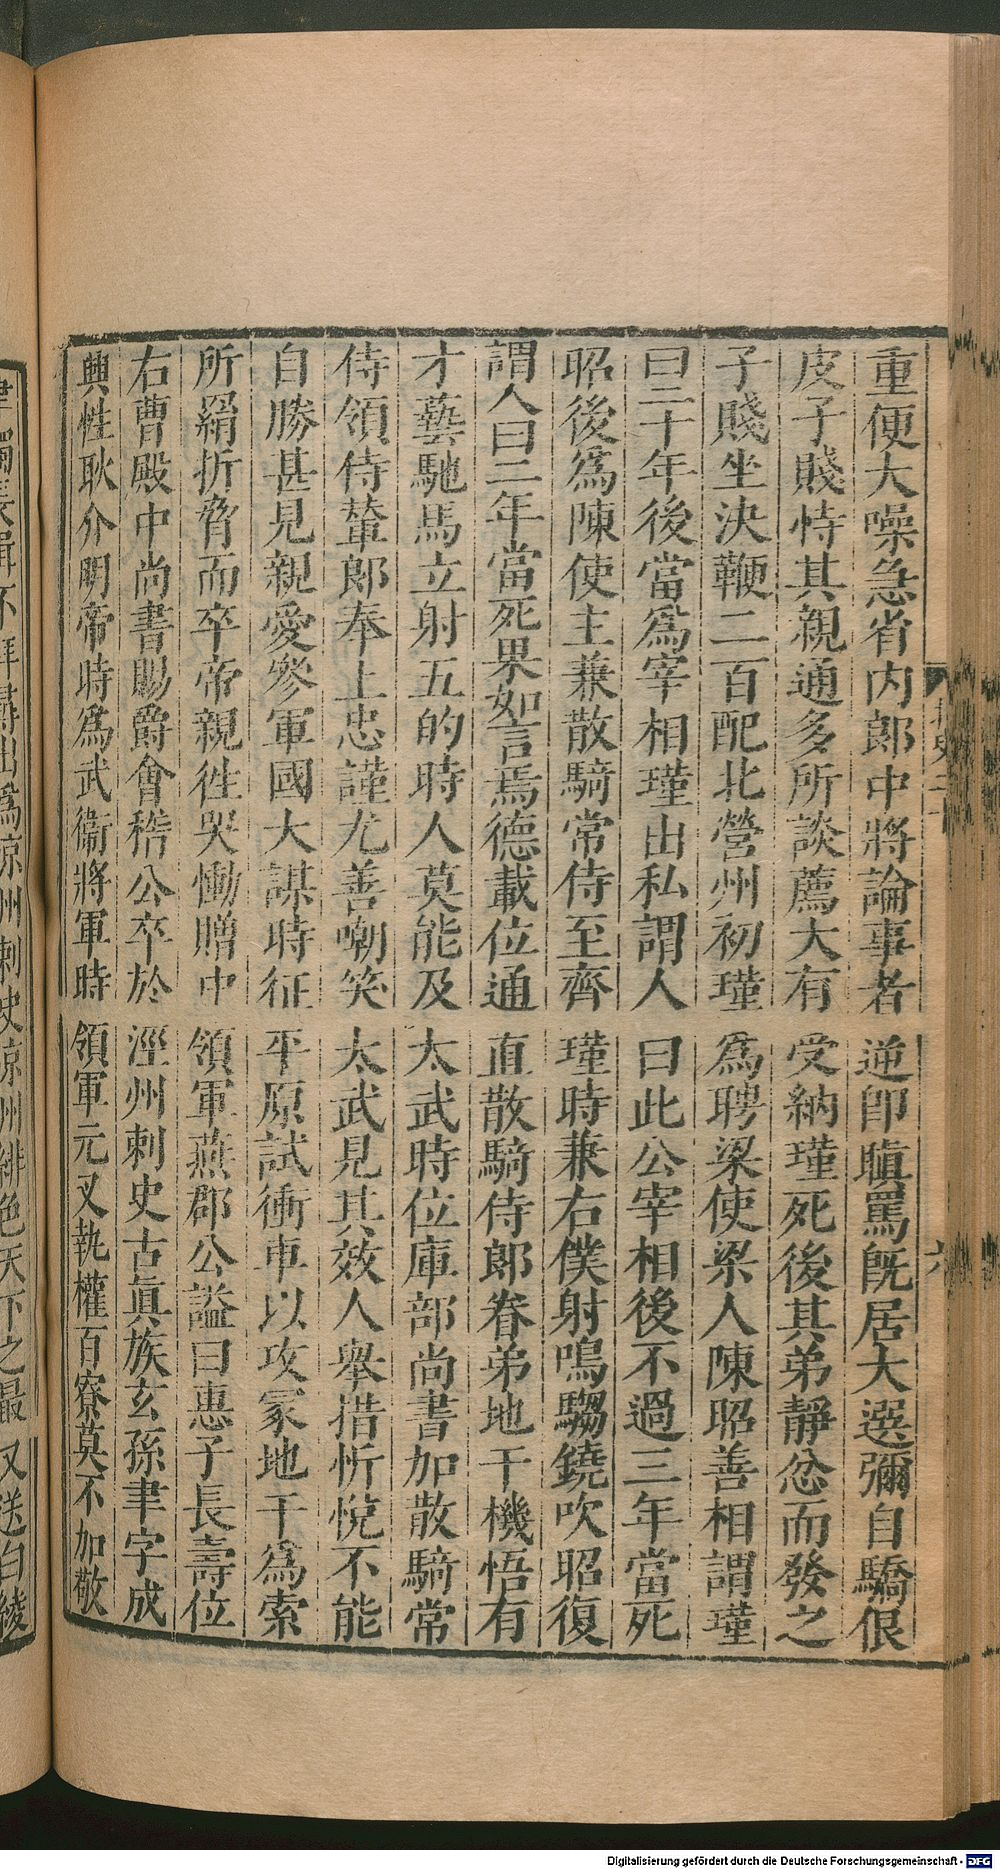 重便大噪急省内郞中將論事者逆卽瞋罵旣居大選彌自驕佷
皮子賤恃其親通多所談薦大有受納瑾死後其弟靜忿而發之
子賤坐決鞭二百配北營州初瑾爲聘梁使梁人陳昭善相謂瑾
曰二十年後當爲宰相瑾出私謂人曰此公宰相後不過三年當死
昭後爲陳使主兼散騎常侍至齊瑾時兼右僕射鳴騶鐃吹昭復
謂人曰二年當死果如言焉德載位通直散騎侍郞眷弟地干機悟有
才藝馳馬立射五的時人莫能及太武時位庫部尚書加散騎常
侍領侍輦郞奉上忠謹尤善嘲笑太武見其效人舉措忻悅不能
自勝甚見親愛參軍國大謀時征平原試衝車以攻冢地干爲索
所絹折脅而卒帝親徃哭慟贈中領軍燕郡公謚曰惠子長壽位
右曹殿中尚書賜爵會稽公卒於涇州刺史古眞族玄孫聿字成
興性耿介明帝時爲武衞將軍時領軍元叉執權百寮莫不加敬
不拜
出爲涼州刺史涼州緋色天下之最又送白綾
六
Digitalisierung gefördert durch die Deutsche Forschungsgemeinschaft - DFG